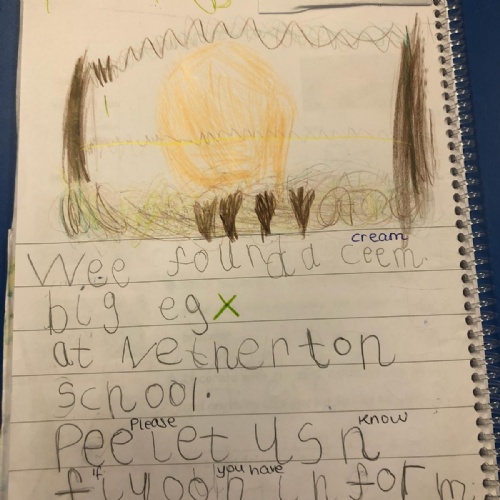 cream
Wee found a ceem
big eg x
at Netherton
school.
Please know
Pee let us n
if you have
f i yoo h inform